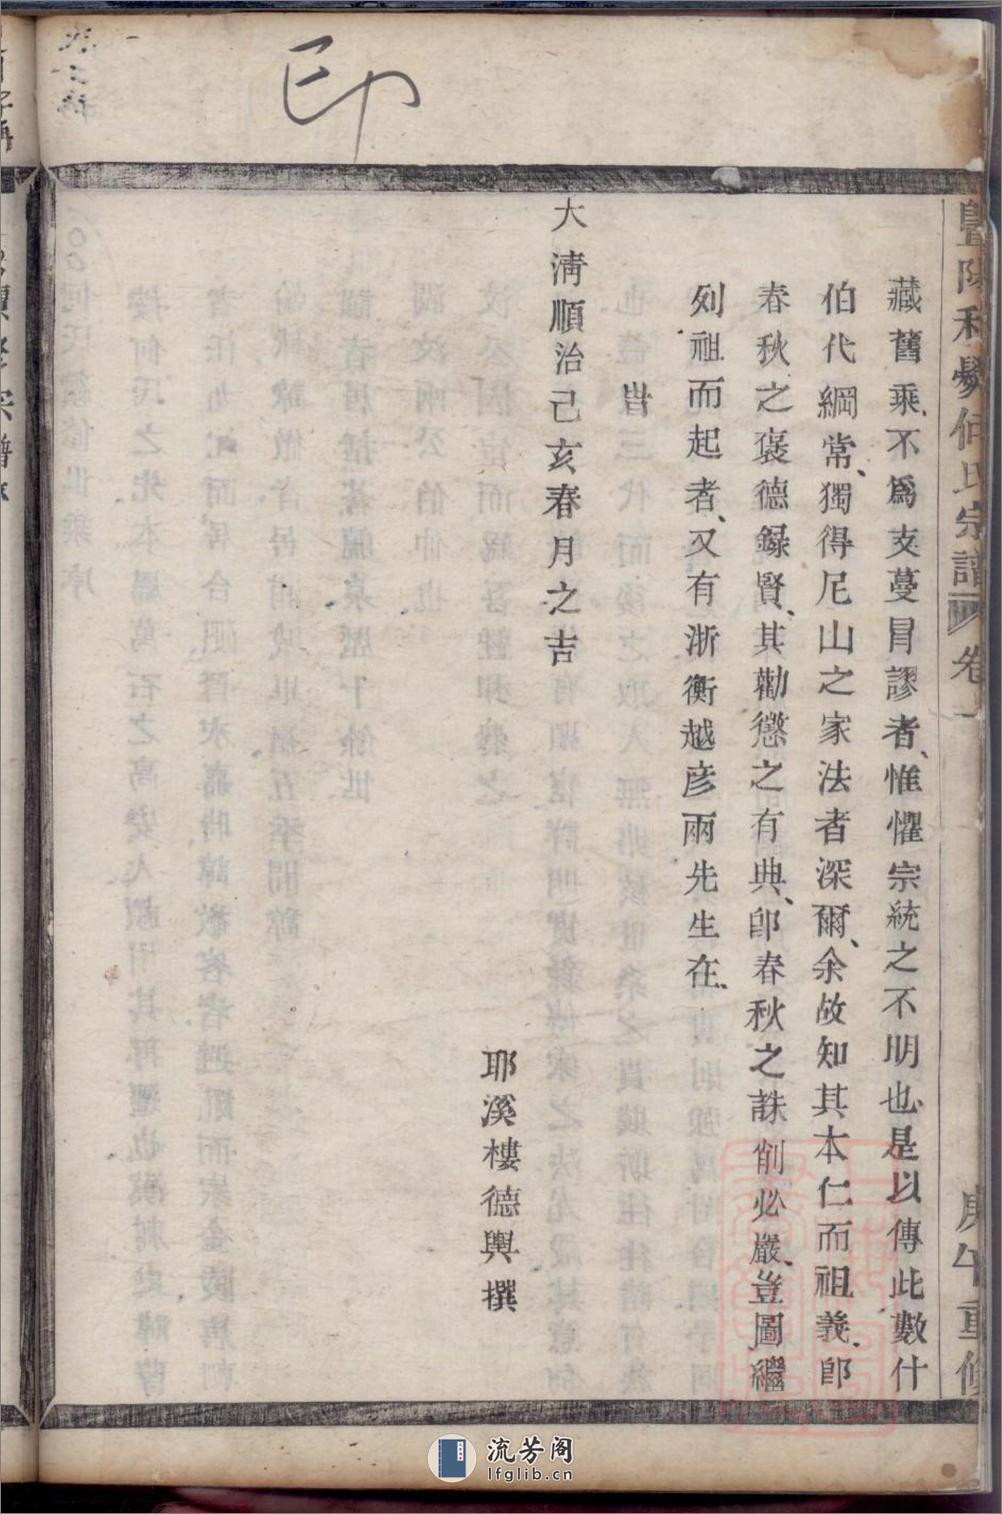 印
暨陽和鄉何氏宗譜 卷一 庚午重修
藏舊乘、不爲支蔓冒謬者、惟懼宗統之不明也、是以傳此數什
伯代綱常、獨得尼山之家法者深爾、余故知其本仁而祖義、卽
春秋之褒德錄賢、其勸懲之有典、卽春秋之誅削必嚴、豈圖繼
列祖而起者、又有浙衡越彥兩先生在、
旹
大淸順治己亥春月之吉
耶溪樓德輿撰
流芳阁
lfglib.cn